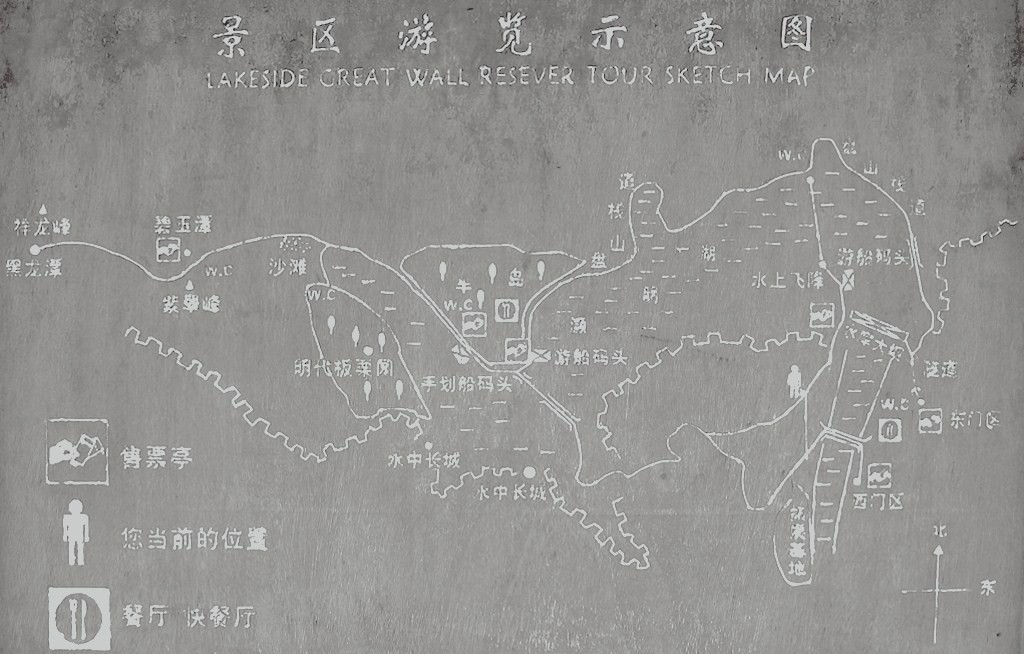 景区游览示意图
LAKESIDE GREAT WALL RESEVER TOUR SKETCH MAP
W.C
山栈道
道栈山盘
祥龙峰
碧玉潭
黑龙潭
W.C
沙滩
湖
游船码头
水上飞降
半岛
紫翠峰
W.C
W.C
明代板栗园
手划船码头
游船码头
隧道
W.C
东门区
水中长城
水中长城
西门区
基地
售票亭
您当前的位置
餐厅 快餐厅
北
东